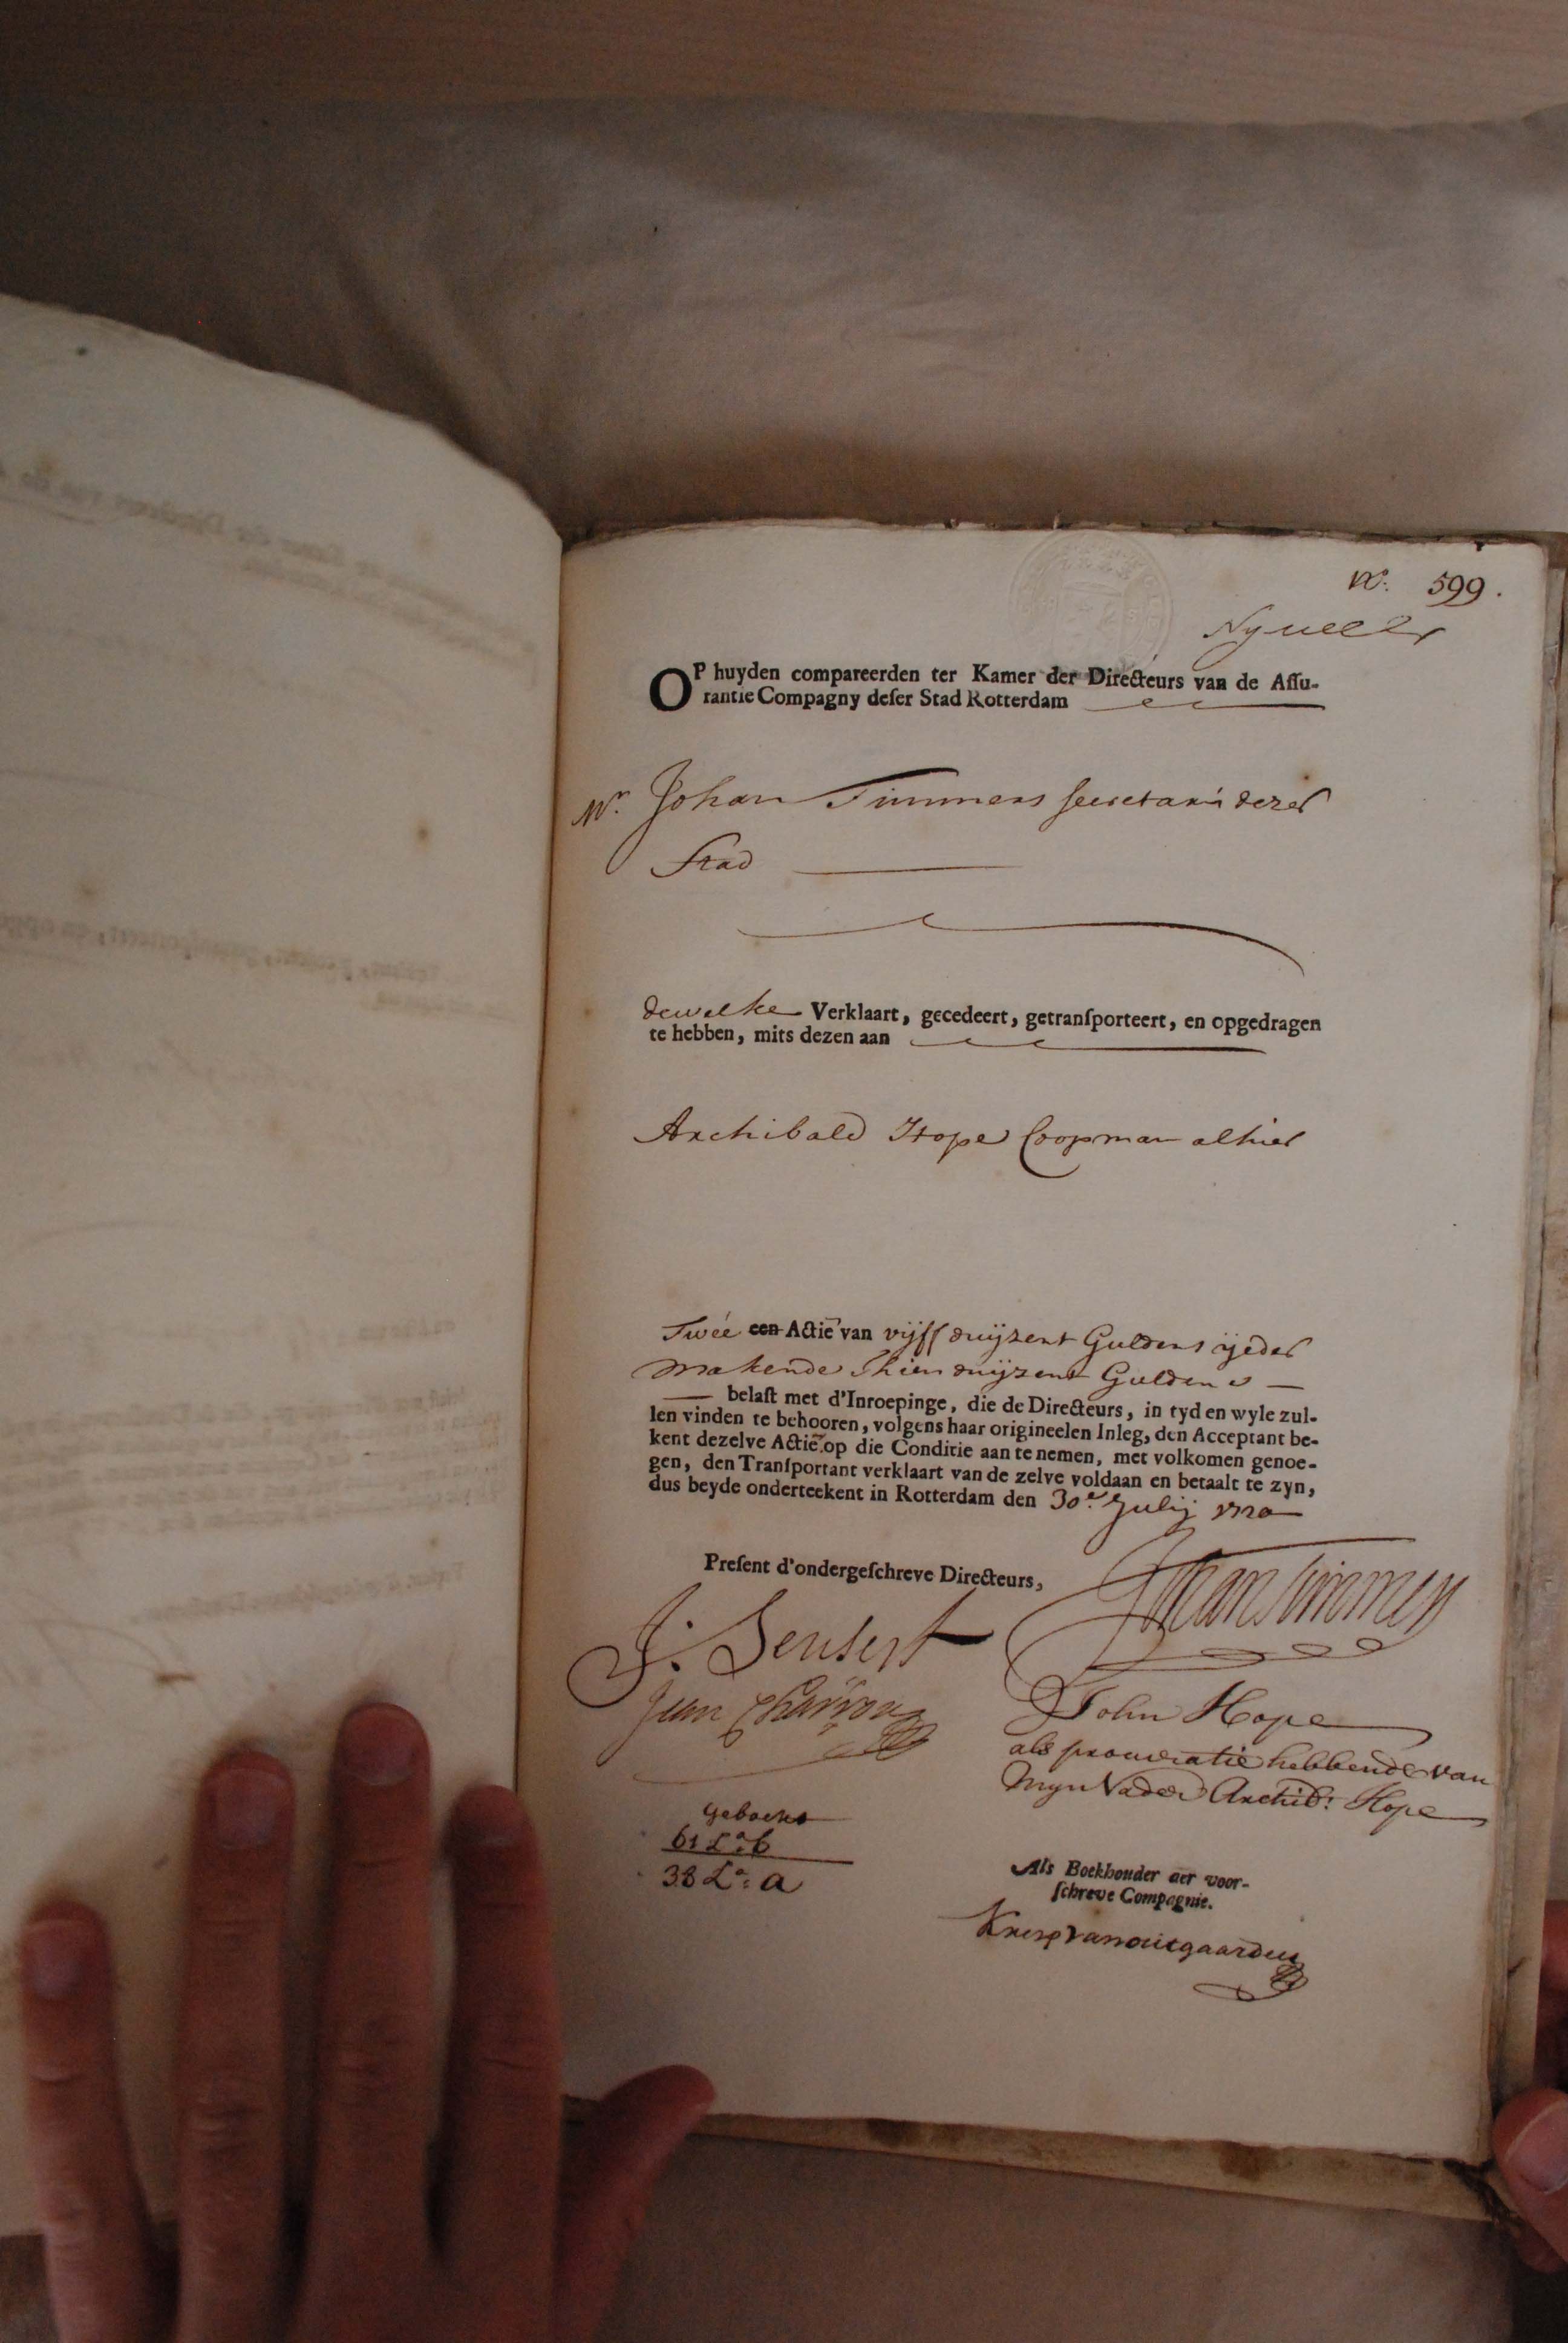 No. 599.
OP huyden compareerden ter Kamer der Directeurs van de Aſſu-
rantie Compagny deſer Stad Rotterdam
Mr. Johan Timmers Secretaris dezer
Stad
dewelke Verklaart, gecedeert, getranſporteert, en opgedragen
te hebben, mits dezen aan
Archibald Hope Coopman alhier
Twée een Actie van vijff duijzent Guldens ijeder
Makende Thien duijzent Guldens
belaſt met d'Inroepinge, die de Directeurs, in tyd en wyle zul-
len vinden te behooren, volgens haar origineelen Inleg, den Acceptant be-
kent dezelve Actie op die Conditie aan te nemen, met volkomen genoe-
gen, den Tranſportant verklaart van de zelve voldaan en betaalt te zyn,
dus beyde onderteekent in Rotterdam den 30e Julij 1720
Preſent d'ondergeſchreve Directeurs,
Johan Timmers
J: Senserf
Jean Charron
John Hope
als procuratie hebbende van
Mijn Vader Archib: Hope
Geboekt
61 La: b
38 La: a
Als Boekhouder der voor-
ſchreve Compagnie.
vanoutgaarden